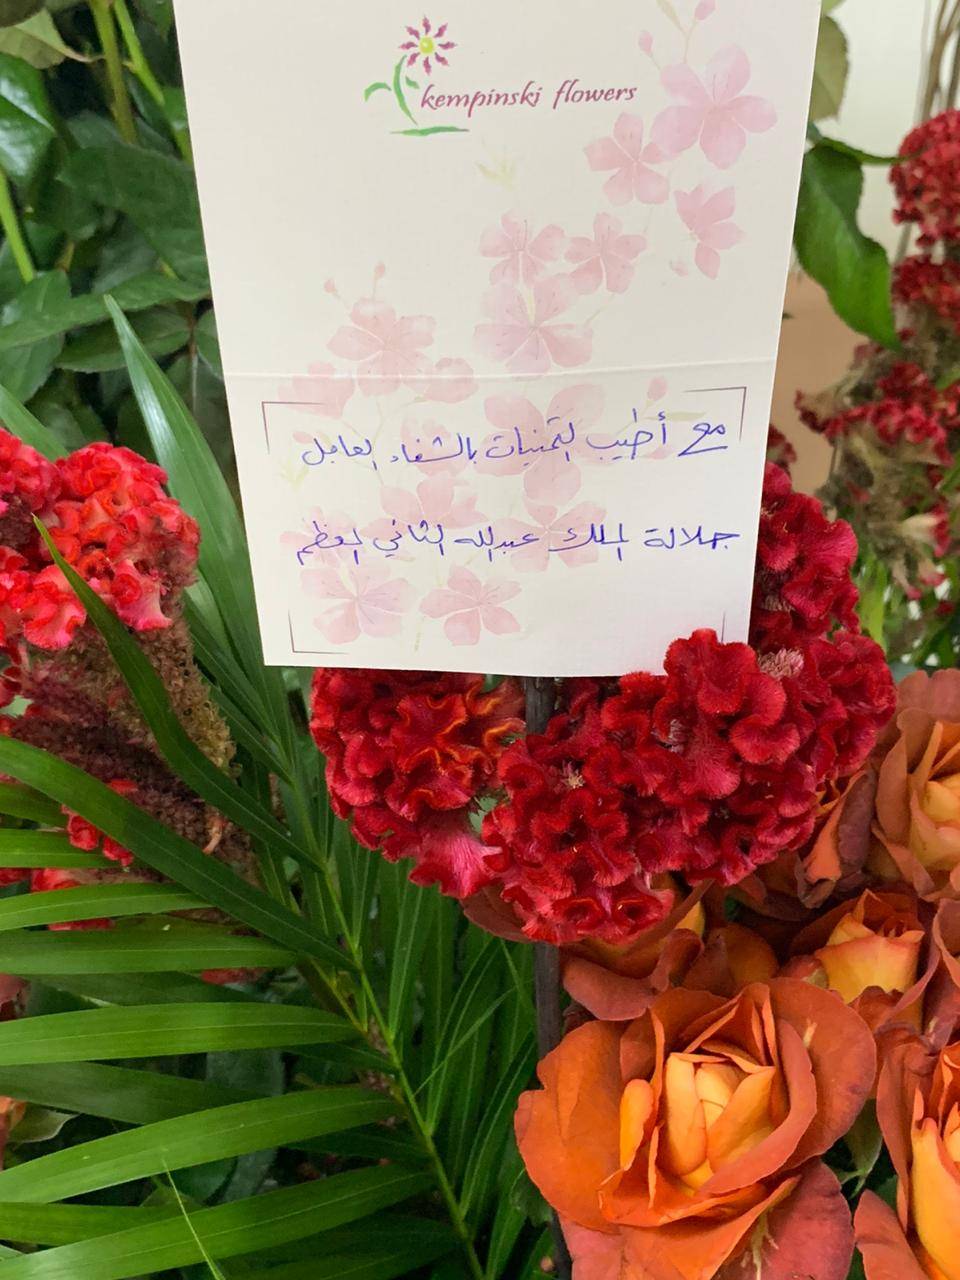 kempinski flowers
مع أطيب التمنيات بالشفاء العاجل
جلالة الملك عبدالله الثاني المعظم